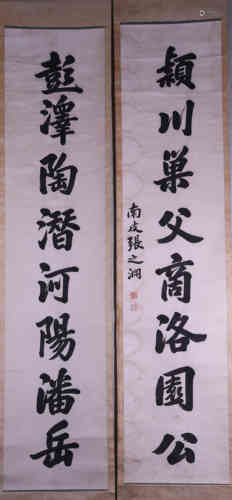 颍川巢父商洛園公
南皮張之洞
彭澤陶潛河陽潘岳